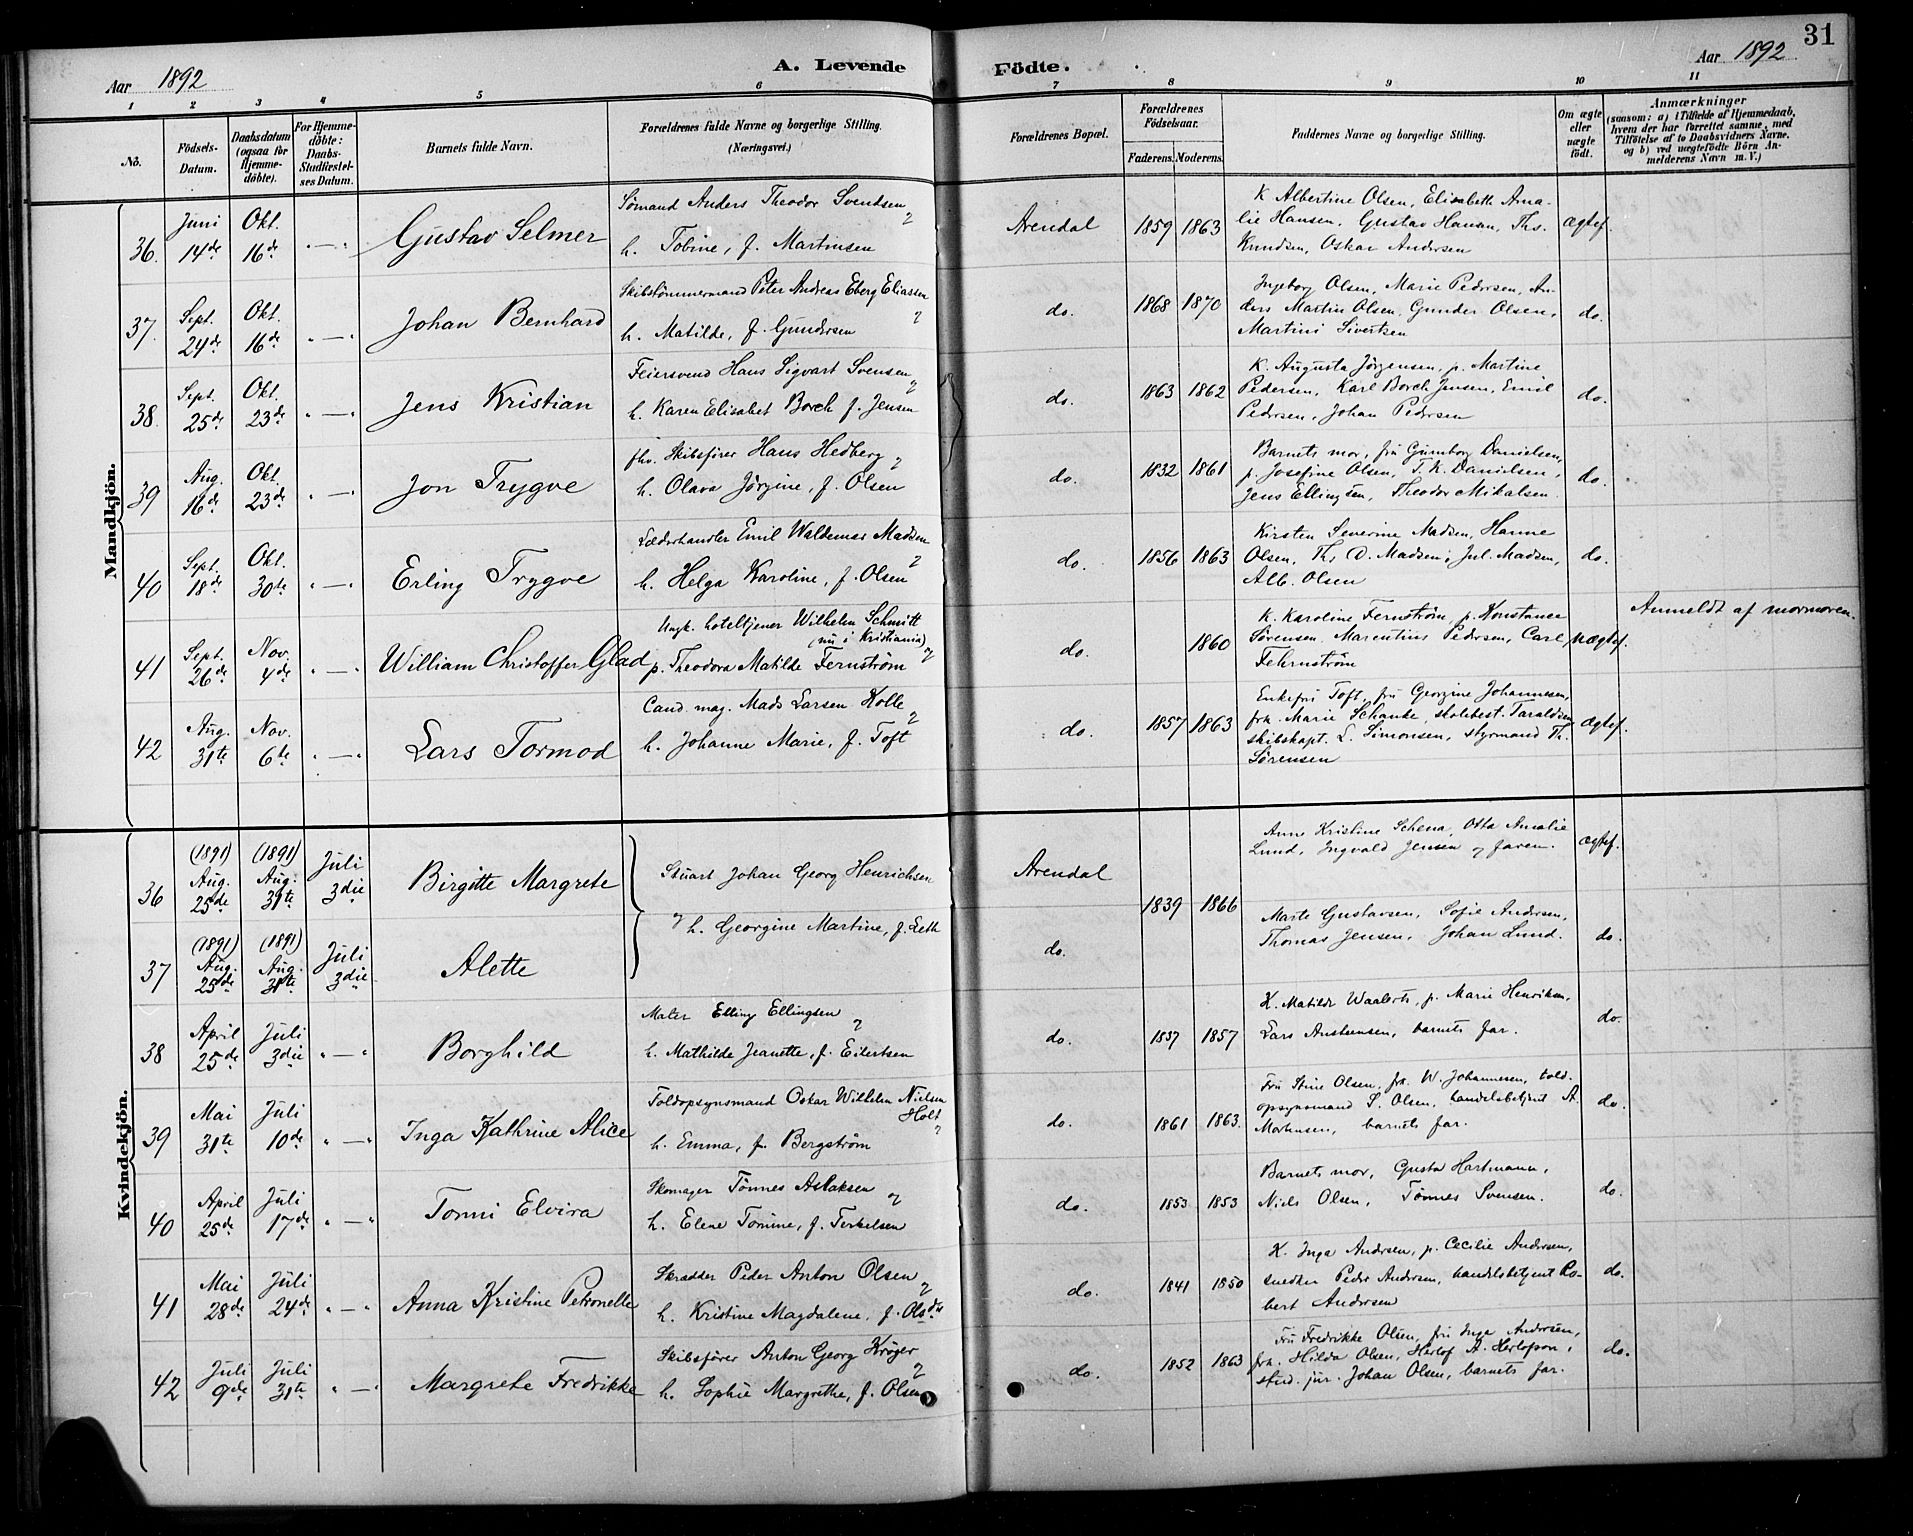 31
Aar 1892
A. Levende Födte.
Aar 1892
1 2 3 4 5 6 7 8 9 10 11
No.
Födsels-Datum.
Daabsdatum (ogsaa for Hjemme-döbte).
For Hjemme-döbte: Daabs-Stadfæstel-ses Datum.
Barnets fulde Navn.
Forældrenes fulde Navne og borgerlige Stilling. (Næringsvei.)
Forældrenes Bopæl.
Forældrenes Födselsaar.
Faderens. Moderens.
Faddernes Navne og borgerlige Stilling.
Om ægte eller uægte födt.
Anmærkninger
(saasom: a) i Tilfælde af Hjemmedaab, hvem der har forrettet samme, med Tilföielse af to Daabsvidners Navne, og b) ved uægtefödte Börn An-melderens Navn m. V.)
Mandkjön.
36. Juni 14de Okt. 16de " — " Gustav Selmer
Sømand Anders Theodor Svendsen &
h. Tobine, f. Martinsen
Arendal 1859 1863
K Albertine Olsen, Elisabeth Ama-
lie Hansen, Gustav Hansen, Ths.
Knudsen, Oskar Andersen
Ægtef.
37. Sept. 24de Okt. 16de " — " Johan Bernhard
Skibstømmermand Peter Andreas Eberg Eliassen &
h. Matilde, f. Gundersen
do. 1868 1870
Ingeborg Olsen, Marie Pedersen, An-
ders Martin Olsen, Gunder Olsen,
Martini Sivertsen
do.
38. Sept. 25de Okt. 23de " — " Jens Kristian
Feiersvend Hans Sigvart Svensen &
h. Karen Elisabet Borch f. Jensen
do. 1863 1862
K. Augusta Jörgensen, p. Martine
Pedersen, Karl Borch Jensen, Emil
Pedersen, Johan Pedersen
do.
39 Aug. 16de Okt. 23de " — " Jon Trygve
fhv. Skibsfører Hans Hedberg &
h. Olava Jörgine, f. Olsen
do. 1832 1861
Barnets mor, fru Gunborg Danielsen,
p. Josefine Olsen, T. K. Danielsen,
Jens Ellingsen, Theodor Mikalsen.
do.
40 Sept. 18de Okt. 30te " — " Erling Trygve
Læderhandler Emil Waldemar Madsen &
h. Helga Karoline, f. Olsen
do. 1856 1863
Kirsten Severine Madsen, Hanne
Olsen, Th. D. Madsen, Jul. Madsen,
Alb. Olsen
do.
41 Sept. 26de Nov. 4de " — " William Christoffer Glad
Ungk. hoteltjener Wilhelm Schmitt
(nu i Kristiania) &
p. Theodora Matilde Fernström
do. 1860
K. Karoline Fernström, p. Konstance
Sørensen, Marentius Pedersen, Carl
Fehrnström
uægtef.
Anmeldt af mormoren.
42 Aug. 31te Nov. 6te " — " Lars Tormod
Cand. mag. Mads Larsen Holle &
h. Johanne Marie, f. Toft
do. 1857 1863
Enkefru Toft, fru Georgine Johannesen,
frk. Marie Schanke, skolebest. Taraldsen,
skibskapt. L. Simonsen, styrmand Th.
Sørensen
ægtef.
Kvindekjön.
36 (1891) Aug. 25de (1891) Aug. 31te Juli 3die Birgitte Margrete
Stuart Johan Georg Henrichsen
Arendal
Anne Kristine Schena, Otta Amalie
Lund, Ingvald Jensen & faren.
ægtef.
1839 1866
37 (1891) Aug. 25de (1891) Aug. 31te Juli 3die Alette
& h. Georgine Martine, f. Leth
do.
Marte Gustavsen, Sofie Andersen,
Thomas Jensen, Johan Lund.
do.
38 April 25de Juli 3die " — " Borghild
Maler Elling Ellingsen &
h. Mathilde Jeanette, f. Eilertsen
do. 1857 1857
K. Matilde Waalerts, p. Marie Henriksen,
Lars Anstensen, barnets far.
do.
39 Mai 31te Juli 10de " — " Inga Kathrine Alice
Toldopsynsmand Oskar Wilhelm Nielsen Holt &
h. Emma, f. Bergström
do. 1861 1863.
Fru Stine Olsen, frk. W. Johannesen, told-
opsynsmand S. Olsen, handelsbetjent A
Mortensen, barnets far.
do.
40 April 25de Juli 17de " — " Tonni Elvira
Skomager Tønnes Aslaksen &
h. Elene Tomine, f. Terkelsen
do. 1853 1853
Barnets mor, Gusta Hartmann,
Niels Olsen, Tønnes Svensen.
do.
41 Mai 28de Juli 24de " — " Anna Kristine Petronelle
Skrædder Peder Anton Olsen &
h. Kristine Magdalene, f. Olsdtr
do. 1841 1850
K. Inga Andersen, p. Cecilie Andersen,
snedker Peder Andersen, handelsbetjent Ro-
bert Andersen
do.
42 Juli 9de Juli 31te " — " Margrete Fredrikke
Skibsfører Anton Georg Krøger &
h. Sophie Margrethe, f. Olsen
do. 1852 1863
Fru Fredrikke Olsen, fru Inga Andersen,
frk. Hilda Olsen, Herlof A. Herlofson,
stud. jur. Johan Olsen, barnets far.
do.